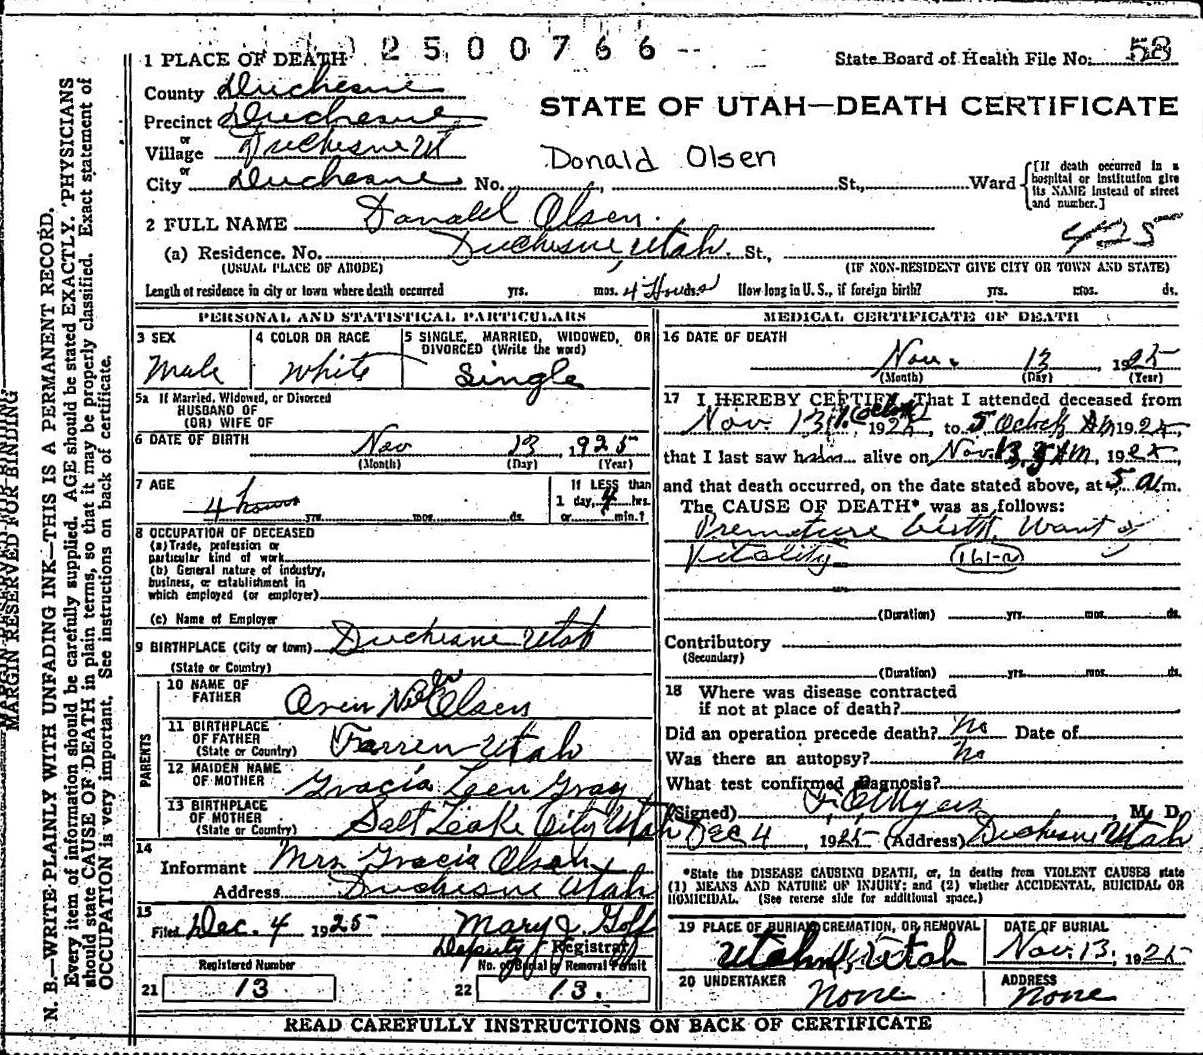 2500766
State Board of Health File No. 58
1 PLACE OF DEATH
STATE OF UTAH—DEATH CERTIFICATE
County Duchesne
Precinct Duchesne
or
Village Duchesne Ut
or
City Duchesne No. St., Ward
Donald Olsen
[If death occurred in a
hospital or institution give
its NAME instead of street
and number.]
2 FULL NAME Donald Olsen.
425
(a) Residence. No. Duchesne, Utah. St.,
(USUAL PLACE OF ABODE) (IF NON-RESIDENT GIVE CITY OR TOWN AND STATE)
Length of residence in city or town where death occurred yrs. mos. 4 Hours ds. How long in U. S., if foreign birth? yrs. mos. ds.
PERSONAL AND STATISTICAL PARTICULARS
3 SEX
Male
4 COLOR OR RACE
White
5 SINGLE, MARRIED, WIDOWED, OR
DIVORCED (Write the word)
Single
5a If Married, Widowed, or Divorced
HUSBAND OF
(OR) WIFE OF
6 DATE OF BIRTH
Nov 13 1925
(Month) (Day) (Year)
7 AGE
4 hours
yrs. mos. ds.
If LESS than
1 day, 4 hrs.
or min.?
8 OCCUPATION OF DECEASED
(a) Trade, profession or
particular kind of work
(b) General nature of industry,
business, or establishment in
which employed (or employer)
(c) Name of Employer
9 BIRTHPLACE (City or town) Duchesne Utah
(State or Country)
PARENTS
10 NAME OF
FATHER
Olsen
11 BIRTHPLACE
OF FATHER
(State or Country)
Utah
12 MAIDEN NAME
OF MOTHER
Gracia Leen Gray
13 BIRTHPLACE
OF MOTHER
(State or Country)
Salt Leake City Utah
14
Informant Mrs. Gracia Olsen
Address Duchesne Utah
15
Filed Dec. 4 1925 Mary J. Goff
Deputy Registrar
Registered Number No. of Burial or Removal Permit
21 13 22 13.
MEDICAL CERTIFICATE OF DEATH
16 DATE OF DEATH
Nov. 13 1925
(Month) (Day) (Year)
17 I HEREBY CERTIFY, That I attended deceased from
Nov. 13, 1925, to 5 Oclock Am 1925,
that I last saw him alive on Nov. 13, 5 AM, 1925,
and that death occurred, on the date stated above, at 5 a.m.
The CAUSE OF DEATH* was as follows:
Premature birth, Want of
Vitality 161-a
(Duration) yrs. mos. ds.
Contributory
(Secondary)
(Duration) yrs. mos. ds.
18 Where was disease contracted
if not at place of death?
Did an operation precede death? No Date of
Was there an autopsy? No
What test confirmed diagnosis?
(Signed) Myers M. D.
Dec 4, 1925 (Address) Duchesne Utah
*State the DISEASE CAUSING DEATH, or, in deaths from VIOLENT CAUSES state
(1) MEANS AND NATURE OF INJURY; and (2) whether ACCIDENTAL, SUICIDAL OR
HOMICIDAL. (See reverse side for additional space.)
19 PLACE OF BURIAL, CREMATION, OR REMOVAL
Utah
DATE OF BURIAL
Nov. 13, 1925
20 UNDERTAKER
None
ADDRESS
None
READ CAREFULLY INSTRUCTIONS ON BACK OF CERTIFICATE
MARGIN RESERVED FOR BINDING
N. B.—WRITE PLAINLY WITH UNFADING INK—THIS IS A PERMANENT RECORD.
Every item of information should be carefully supplied. AGE should be stated EXACTLY. PHYSICIANS
should state CAUSE OF DEATH in plain terms, so that it may be properly classified. Exact statement of
OCCUPATION is very important. See instructions on back of certificate.